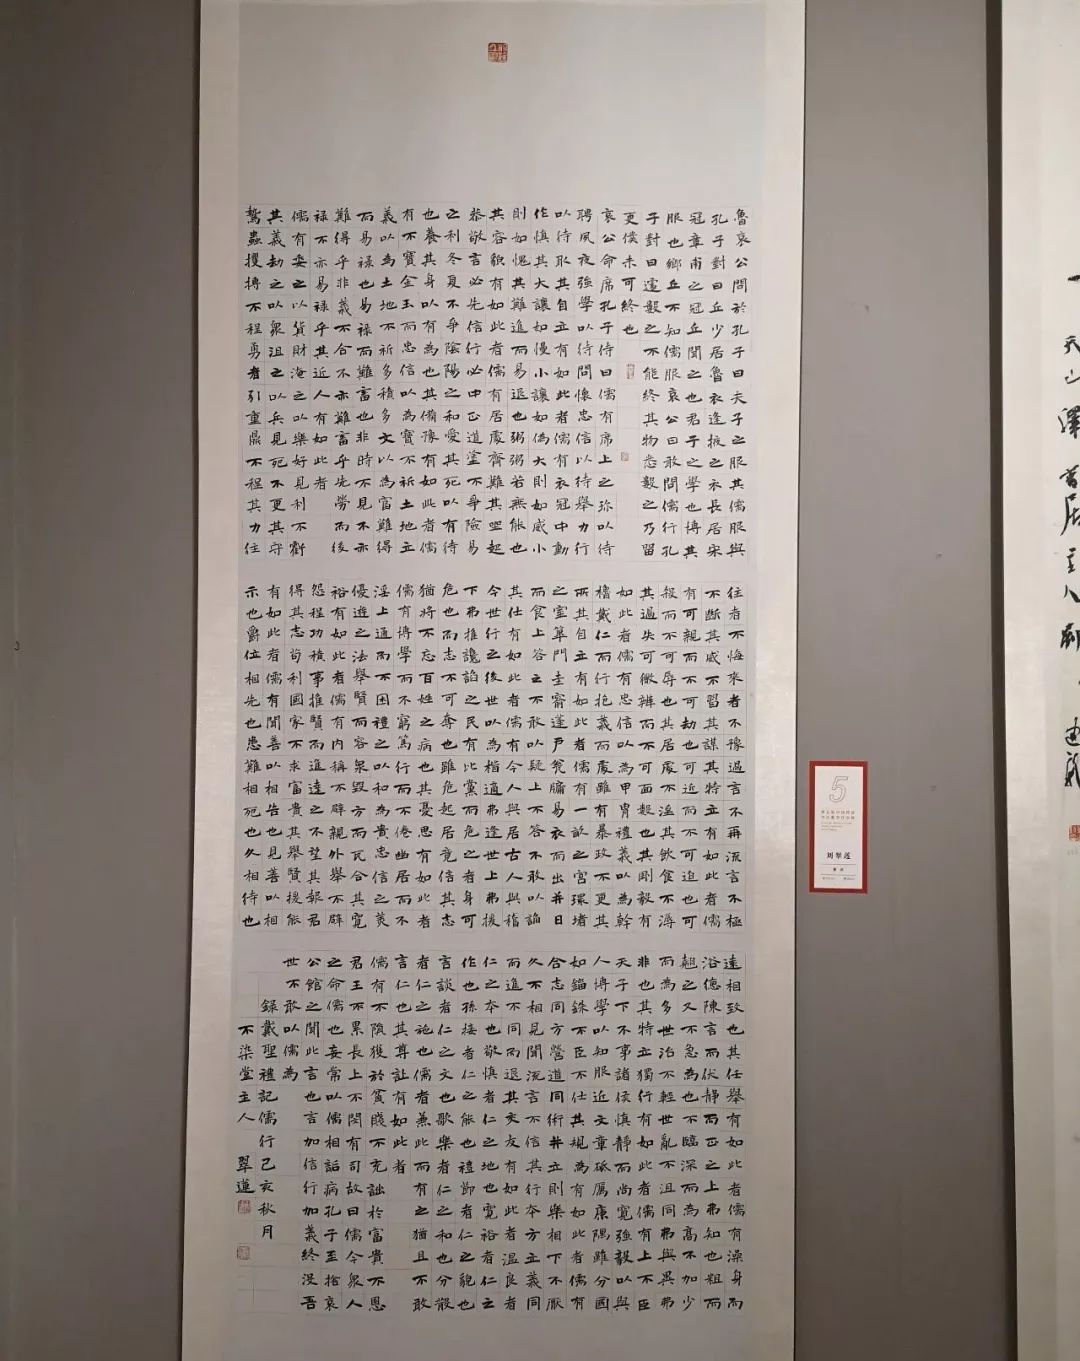 魯哀公問於孔子曰夫子之服其儒服與
孔子對曰丘少居魯衣逢掖之衣長居宋
冠章甫之冠丘聞之也君子之學也博其
服也鄉丘不知儒服哀公曰敢問儒行孔
子對曰遽數之不能終其物悉數之乃留
更僕未可終也
哀公命席孔子侍曰儒有席上之珎以待
聘夙夜強學以待問懷忠信以待舉力行
以待取其自立有如此者儒有衣冠中動
作慎其大讓如慢小讓如偽大則如威小
則如愧其難進而易退也粥粥若無能也
其容貌有如此者儒有居處齊難其坐起
恭敬言必先信行必中正道塗不爭險易
之利冬夏不爭陰陽之和愛其死以有待
也養其身以有為也其備豫有如此者儒
有不寶金玉而忠信以為寶不祈土地立
義以為土地不祈多積多文以為富難得
而易祿也易祿而難畜也非時不見不亦
難得乎非義不合不亦難畜乎先勞而後
祿不亦易祿乎其近人有如此者
儒有委之以貨財淹之以樂好見利不虧
其義劫之以衆沮之以兵見死不更其守
鷙蟲攫搏不程勇者引重鼎不程其力往
往者不悔來者不豫過言不再流言不極
不斷其威不習其謀其特立有如此者儒
有可親而不可劫也可近而不可迫也可
殺而不可辱也其居處不淫其飲食不溽
其過失可微辨而不可面數也其剛毅有
如此者儒有忠信以為甲冑禮義以為幹
櫓戴仁而行抱義而處雖有暴政不更其
所其自立有如此者儒有一畝之宮環堵
之室篳門圭窬蓬戶甕牖易衣而出并日
而食上答之不敢以疑上不答不敢以諂
其仕有如此者儒有今人與居古人與稽
今世行之後世以為楷適弗逢世上弗援
下弗推讒諂之民有比黨而危之者身可
危也而志不可奪也雖危起居竟信其志
猶將不忘百姓之病也其憂思有如此者
儒有博學而不窮篤行而不倦幽居而不
淫上通而不困禮之以和為貴忠信之美
優遊之法舉賢而容衆毀方而瓦合其寬
裕有如此者儒有內稱不辟親外舉不辟
怨程功積事推賢而進達之不望其報君
得其志苟利國家不求富貴其舉賢援能
有如此者儒有聞善以相告也見善以相
示也爵位相先也患難相死也久相待也
遠相致也其任舉有如此者儒有澡身而
浴德陳言而伏靜而正之上弗知也粗而
翹之又不急為也不臨深而為高不加少
而為多世治不輕世亂不沮同弗與異弗
非也其特立獨行有如此者儒有上不臣
天子下不事諸侯慎靜而尚寬強毅以與
人博學以知服近文章砥厲廉隅雖分國
如錙銖不臣不仕其規為有如此者儒有
合志同方營道同術并立則樂相下不厭
久不相見聞流言不信其行本方立義同
而進不同而退其交友有如此者溫良者
仁之本也敬慎者仁之地也寬裕者仁之
作也孫接者仁之能也禮節者仁之貌也
言談者仁之文也歌樂者仁之和也分散
者仁之施也儒者兼此而有之猶且不敢
言仁也其尊讓有如此者
儒有不隕獲於貧賤不充詘於富貴不慁
君王不累長上不閔有司故曰儒今衆人
之命儒也妄常以儒相詬病孔子至捨哀
公館之聞此言也言加信行加義終沒吾
世不敢以儒為
錄戴聖禮記儒行己亥秋月
不染堂主人 翠蓮
5
刘翠莲